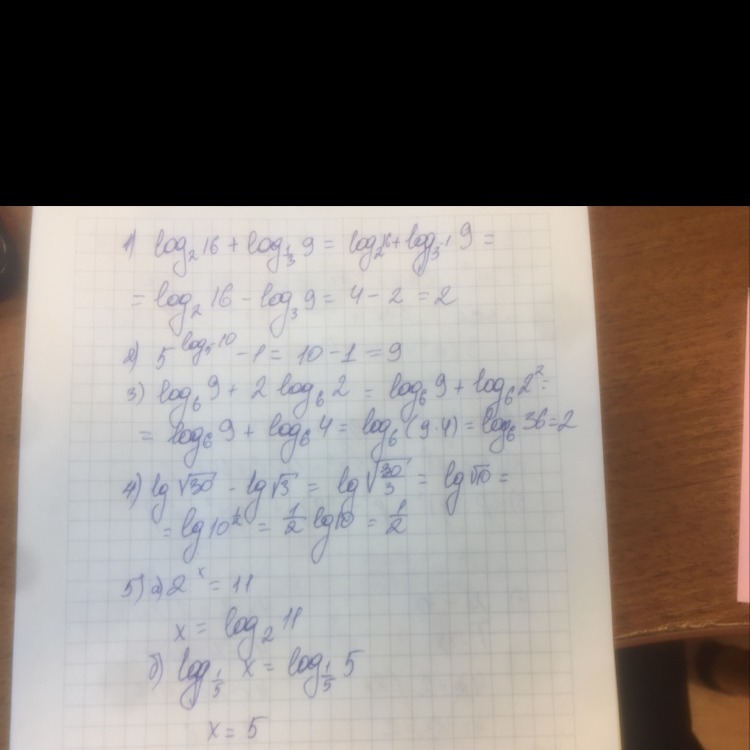 1) log₂16 + log_{1/3} 9 = log₂16 + log_{3⁻¹} 9 =
= log₂ 16 - log₃ 9 = 4 - 2 = 2
2) 5^{log₅10} - 1 = 10 - 1 = 9
3) log₆ 9 + 2 log₆ 2 = log₆ 9 + log₆ 2² =
= log₆ 9 + log₆ 4 = log₆ (9·4) = log₆ 36 = 2
4) lg √30 - lg √3 = lg √(30/3) = lg √10 =
= lg 10^{1/2} = 1/2 lg 10 = 1/2
5) а) 2ˣ = 11
x = log₂ 11
б) log_{1/5} x = log_{1/5} 5
x = 5